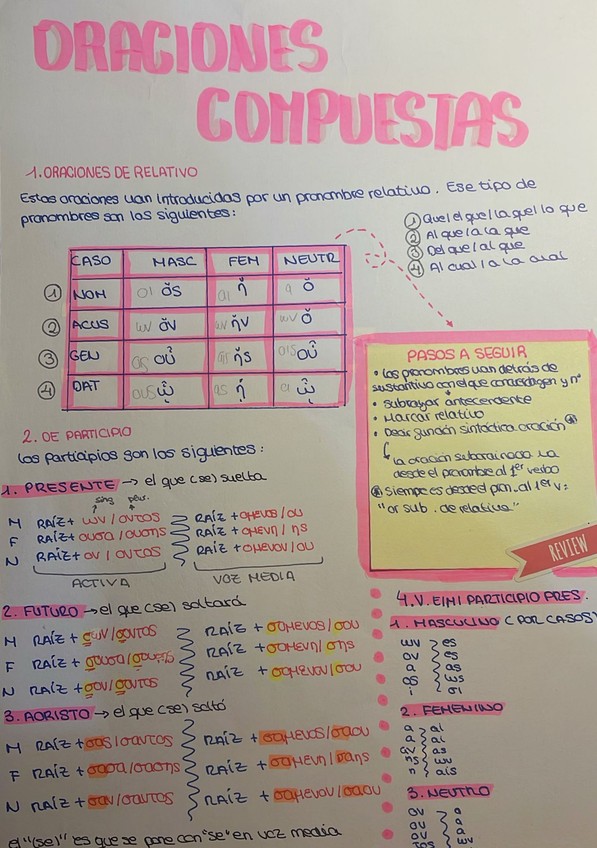 ORACIONES
COMPUESTAS
1. ORACIONES DE RELATIVO
Estas oraciones van introducidas por un pronombre relativo. Ese tipo de
pronombres son los siguientes:
① que/el que/la que/lo que
② Al que/a la que
③ Del que/al que
④ Al cual/a la cual
CASO MASC FEM NEUTR
① NOM οι ὅς αι ἥ α ὅ
② ACUS ων ὅν ων ἥν ων ὅ
③ GEN ας οὗ ας ἧς αις οὗ
④ DAT ους ᾧ ας ᾗ αι ᾧ
PASOS A SEGUIR
• Los pronombres van detrás de
sustantivo con el que concuerda gen y nº
• Subrayar antecedente
• Marcar relativo
• Decir función sintáctica oración
la oración subordinada va
desde el pronombre al 1er verbo
Siempre es desde el pron. al 1er v:
"or sub. de relativo"
REVIEW
2. DE PARTICIPIO
Los participios son los siguientes:
1. PRESENTE → el que (se) suelta
sing plur.
M RAÍZ + ων / οντος RAÍZ + ομενος / ου
F RAÍZ + ουσα / ουσης RAÍZ + ομενη / ης
N RAÍZ + ον / οντος RAÍZ + ομενον / ου
ACTIVA VOZ MEDIA
2. FUTURO → el que (se) soltará
M RAÍZ + σων / σοντος RAÍZ + σομενος / σου
F RAÍZ + σουσα / σουσης RAÍZ + σομενη / σης
N RAÍZ + σον / σοντος RAÍZ + σομενον / σου
3. AORISTO → el que (se) soltó
M RAÍZ + σας / σαντος RAÍZ + σαμενος / σαου
F RAÍZ + σασα / σασης RAÍZ + σαμενη / σαης
N RAÍZ + σαν / σαντος RAÍZ + σαμενον / σαου
el "(se)" es que se pone con "se" en voz media
4. V. EIMI PARTICIPIO PRES.
1. MASCULINO (POR CASOS)
ων ες
ον ες
α ας
ος ως
ι σι
2. FEMENINO
α αι
α αι
αν ας
ης ων
η αις
3. NEUTRO
ον α
ον α
ον α
τος ων